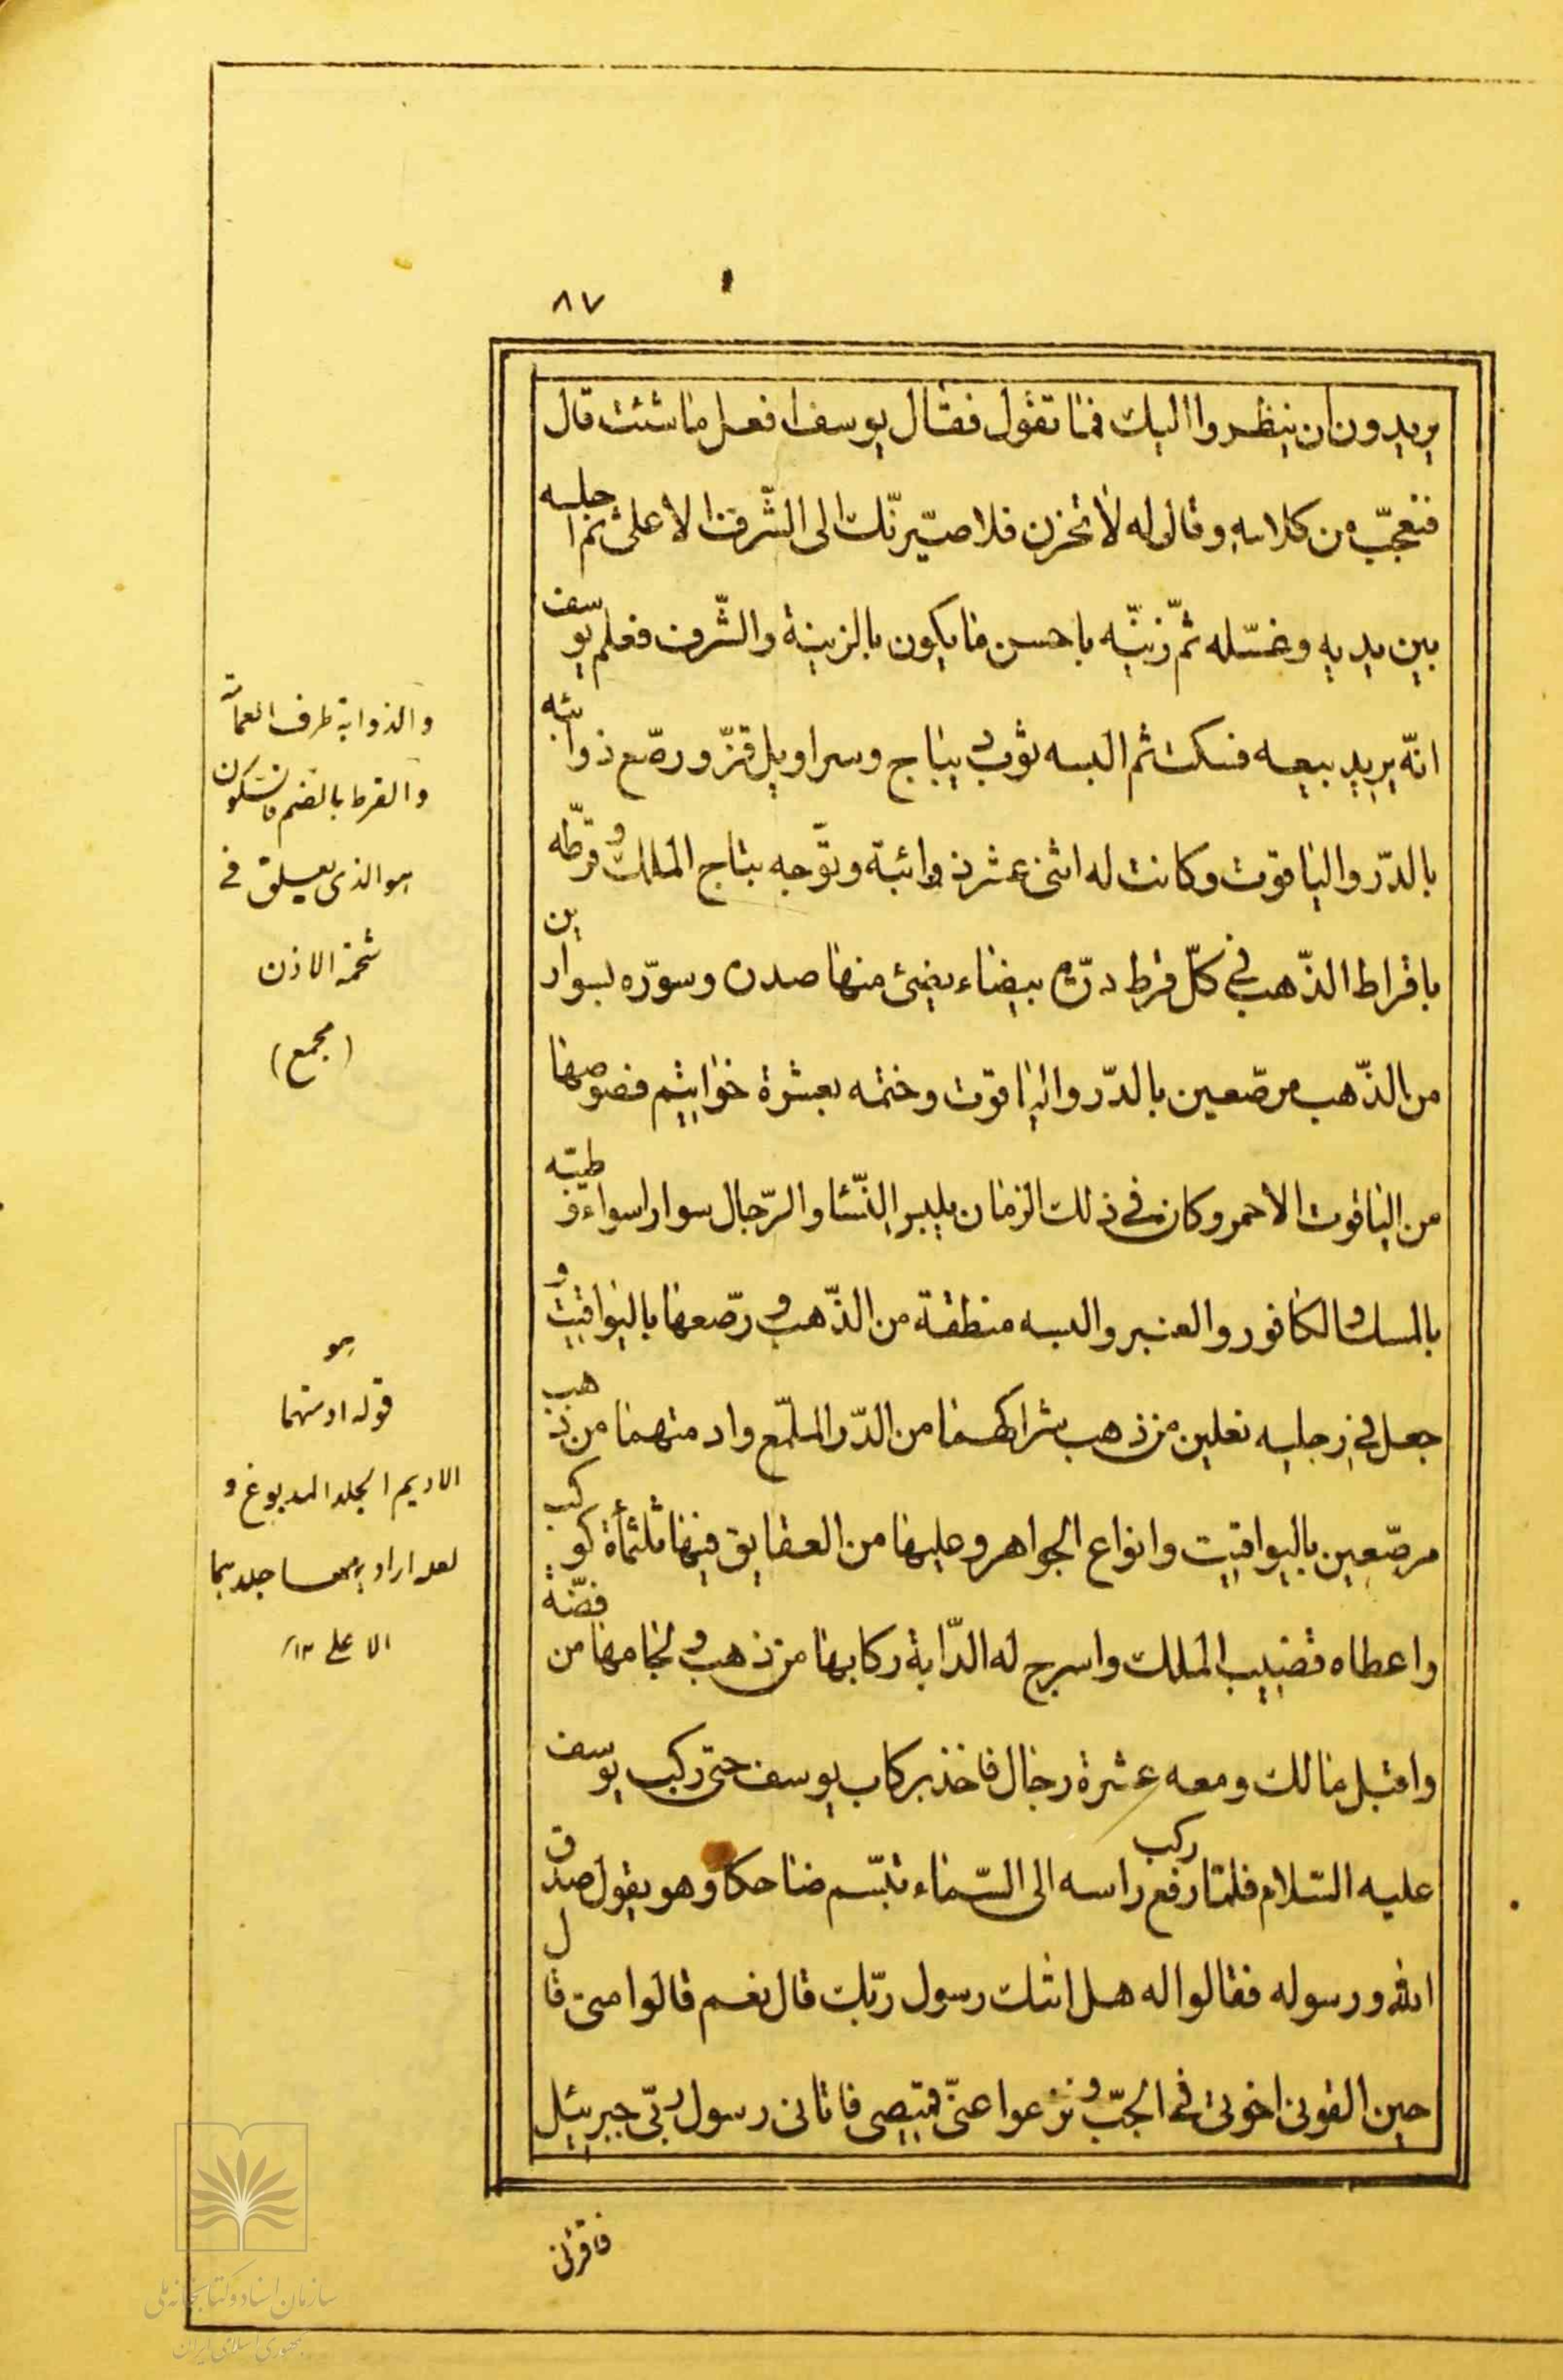 ٨٧
يريدون ان ينظروا اليك فما تقول فقال يوسف افعل ما شئت قال
فتعجّب من كلامه وقال له لا تحزن فلاصيّرنّك الى الشّرف الاعلى ثم اجلسه
بين يديه وغسّله ثمّ زيّنه باحسن ما يكون بالزينة والشّرف فعلم يوسف
انّه يريد بيعه فسكت ثم البسه ثوب ديباج وسراويل قزّ ورصّع ذوائبه
بالدّر والياقوت وكانت له اثنى عشر ذوائبة وتوّجه بتاج الملك وقرّطه
باقراط الذّهب فى كلّ قرط درّة بيضاء يضيئ منها صدره وسوّره بسوارين
من الذّهب مرصّعين بالدّر والياقوت وختمه بعشرة خواتيم فصوصها
من الياقوت الاحمر وكان فى ذلك الزمان يلبس النّساء والرّجال سوارا سواء وطيّبه
بالمسك والكافور والعنبر والبسه منطقة من الذّهب ورصّعها باليواقيت و
جعل فى رجليه نعلين من ذهب شراكهما من الدّر الملمّع وادمتهما من ذهب
مرصّعين باليواقيت وانواع الجواهر وعليها من العقايق فيها ثلثمأة كوكب
واعطاه قضيب الملك واسرج له الدّابة ركابها من ذهب ولجامها من فضّة
واقبل مالك ومعه عشرة رجال فاخذ بركاب يوسف حتى ركب يوسف
عليه السّلام فلمّا ركب رفع راسه الى السّماء تبسّم ضاحكا وهو يقول صدق
الله ورسوله فقالوا له هل اتيك رسول ربّك قال نعم قالوا متى قال
حين القونى اخوتى فى الجبّ ونزعوا عنّى قميصى فاتانى رسول ربّى جبرييل
فاقرنى
والذوابة طرف العمامة
والقرط بالضم فالسكون
هو الذى يعلق فى
شحمة الاذن
(مجمع)
هو
قوله ادمتهما
الاديم الجلد المدبوغ و
لعله اراد بهما جلدهما
الاعلى ١٢
سازمان اسناد و کتابخانه ملی
جمهوری اسلامی ایران